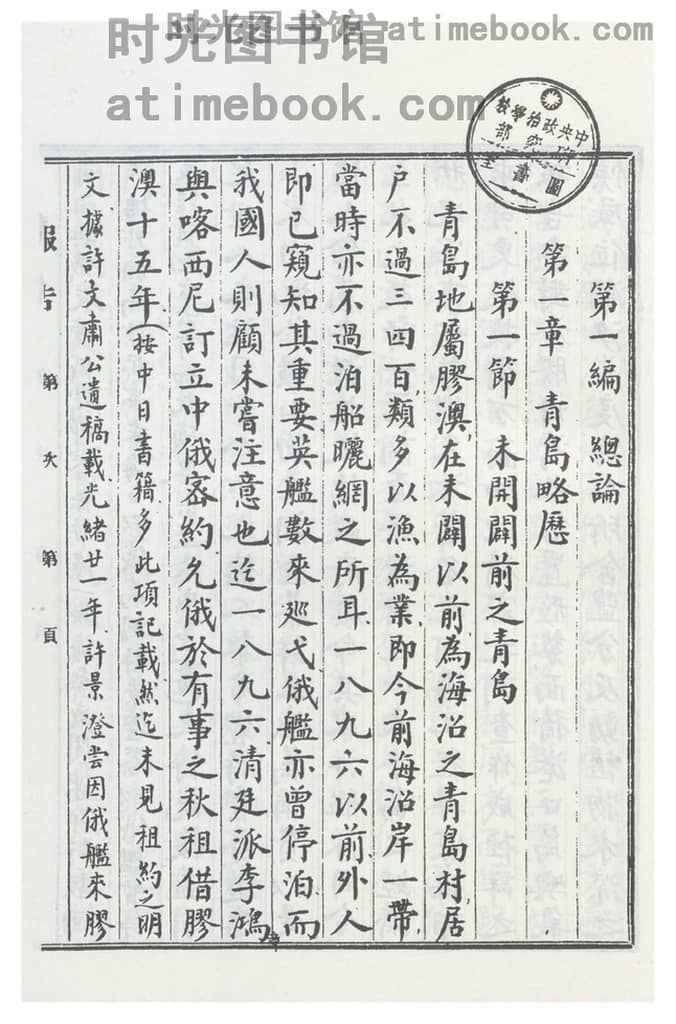 时光图书馆 atimebook.com
时光图书馆
atimebook.com
中央政治學校
研究部
圖書室
第一編 總論
第一章 青島略歷
第一節 未開闢前之青島
青島地屬膠澳，在未闢以前為海沿之青島村，居
户不過三四百，類多以漁為業，即今前海沿岸一帶，
當時亦不過泊船曬網之所耳，一八九六以前外人
即已窺知其重要英艦數來巡弋俄艦亦曾停泊而
我國人則顧未嘗注意也迄一八九六清廷派李鴻章
與喀西尼訂立中俄密約允俄於有事之秋租借膠
澳十五年（按中日書籍多此項記載然迄未見租約之明
文據許文肅公遺稿載光緒廿一年許景澄嘗因俄艦來膠
報告 第 頁 第 頁